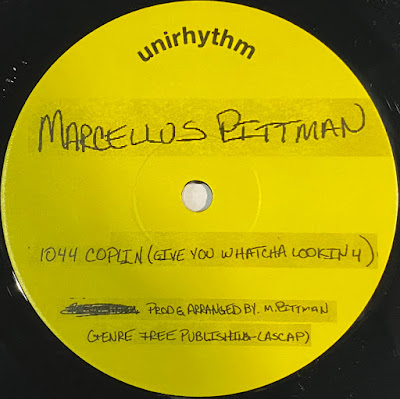 unirhythm
MARCELLUS PITTMAN
1044 COPLIN (GIVE YOU WHATCHA LOOKIN 4)
PROD & ARRANGED BY. M. PITTMAN
(GENRE FREE PUBLISHING - (ASCAP)